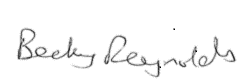 Becky Reynolds